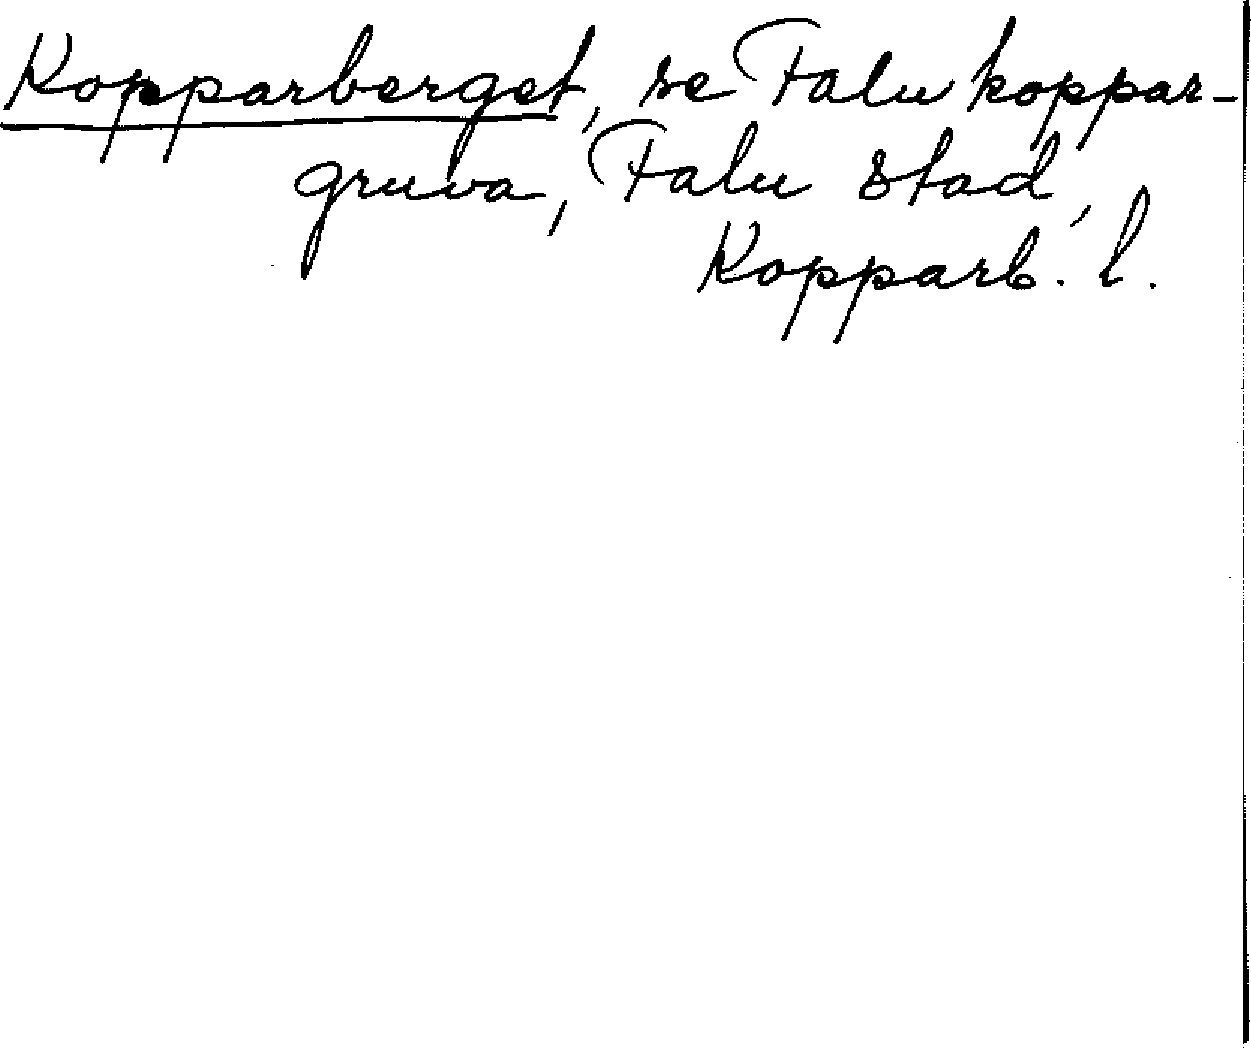 Kopparberget, se Falu koppar-
gruva, Falu stad,
Kopparb. l.